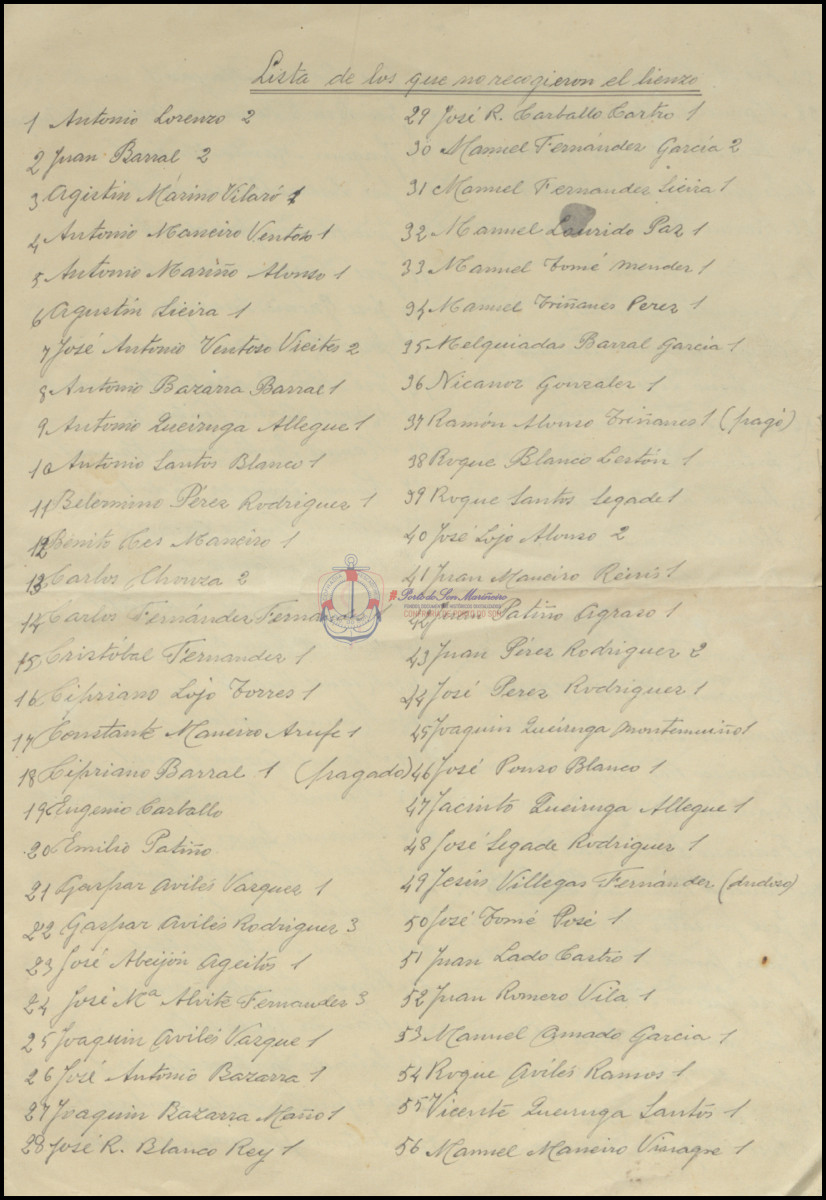 Lista de los que no recogieron el lienzo
1 Antonio Lorenzo 2
2 Juan Barral 2
3 Agustín Mariño Vilaró 1
4 Antonio Maneiro Ventoso 1
5 Antonio Mariño Alonso 1
6 Agustín Lieira 1
7 José Antonio Ventoso Vieites 2
8 Antonio Bazarra Barral 1
9 Antonio Queiruga Allegue 1
10 Antonio Santos Blanco 1
11 Belermino Pérez Rodriguez 1
12 Benito Ces Maneiro 1
13 Carlos Chouza 2
14 Carlos Fernández Fernandez 1
15 Cristóbal Fernandez 1
16 Cipriano Lojo Torres 1
17 Constante Maneiro Arufe 1
18 Cipriano Barral 1 (pagado)
19 Eugenio Carballo
20 Emilio Patiño
21 Gaspar Avilés Vazquez 1
22 Gaspar Avilés Rodriguez 3
23 José Abeijón Ageitos 1
24 José Mª Alvite Fernandez 3
25 Joaquin Avilés Vazque 1
26 José Antonio Bazarra 1
27 Joaquin Bazarra Maño 1
28 José R. Blanco Rey 1
29 José R. Carballo Castro 1
30 Manuel Fernández García 2
31 Manuel Fernandez Lieira 1
32 Manuel Laurido Paz 1
33 Manuel Tomé Mendez 1
34 Manuel Triñanes Perez 1
35 Melquiadas Barral García 1
36 Nicanor Gonzalez 1
37 Ramón Alonso Triñanes 1 (pagó)
38 Roque Blanco Lestón 1
39 Roque Santos Segade 1
40 José Lojo Alonso 2
41 Juan Maneiro Reiris 1
42 Juan Patiño Agraso 1
43 Juan Pérez Rodriguez 2
44 José Perez Rodriguez 1
45 Joaquin Queiruga Montemuiño 1
46 José Ponso Blanco 1
47 Jacinto Queiruga Allegue 1
48 José Segade Rodriguez 1
49 Jesús Villegas Fernández (dudoso)
50 José Tomé Posé 1
51 Juan Lado Castro 1
52 Juan Romero Vila 1
53 Manuel Amado Garcia 1
54 Roque Avilés Ramos 1
55 Vicente Queiruga Santos 1
56 Manuel Maneiro Vinagre 1
Porto do Son Mariñeiro